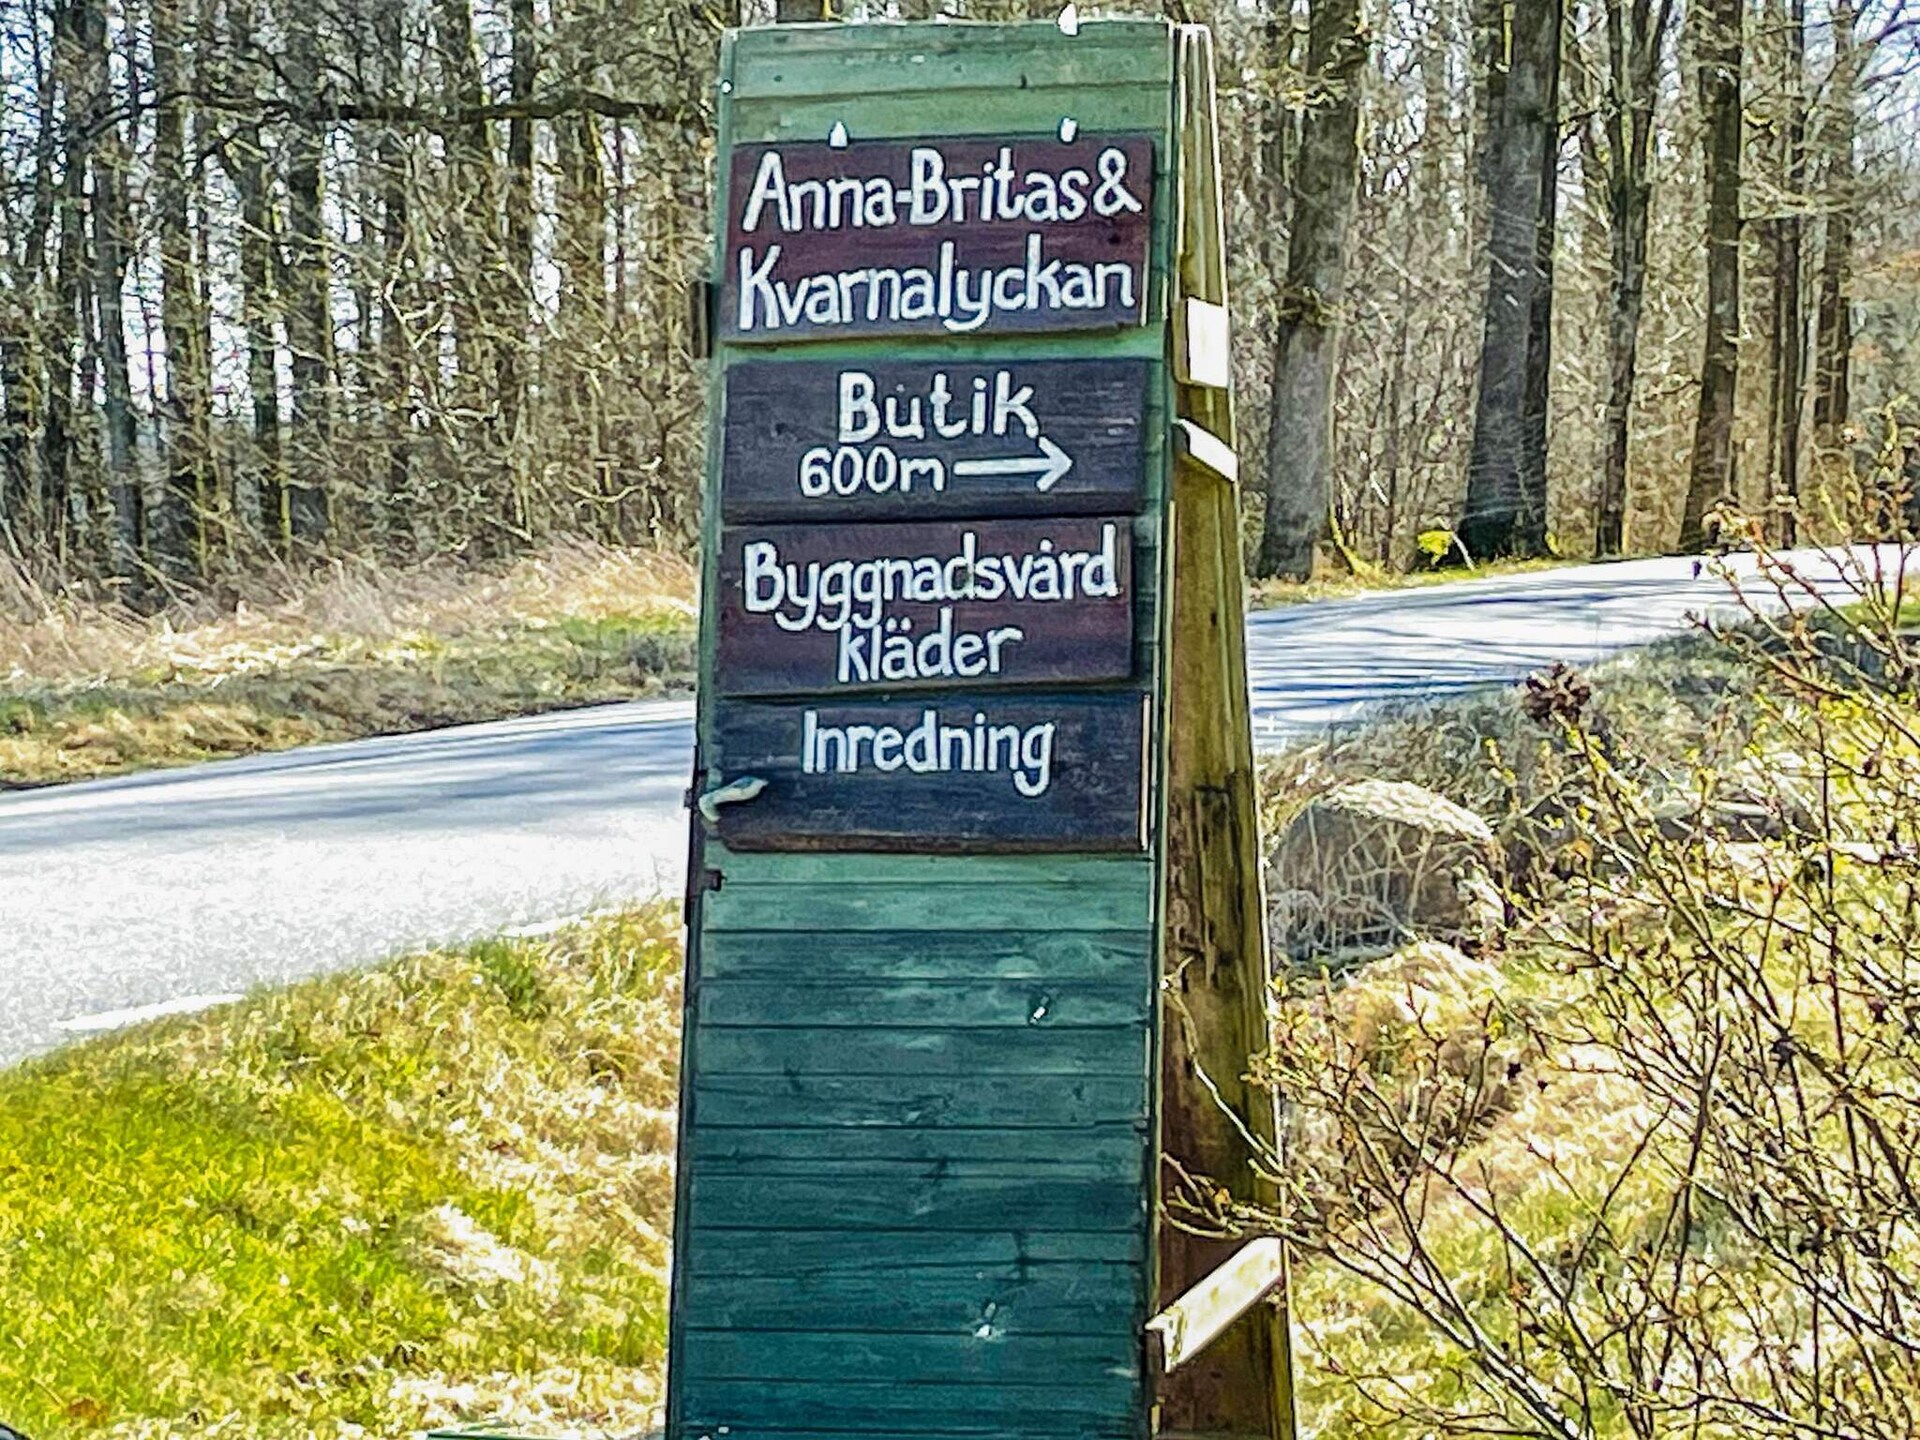 Anna-Britas &
Kvarnalyckan
Butik
600m →
Byggnadsvård
kläder
Inredning